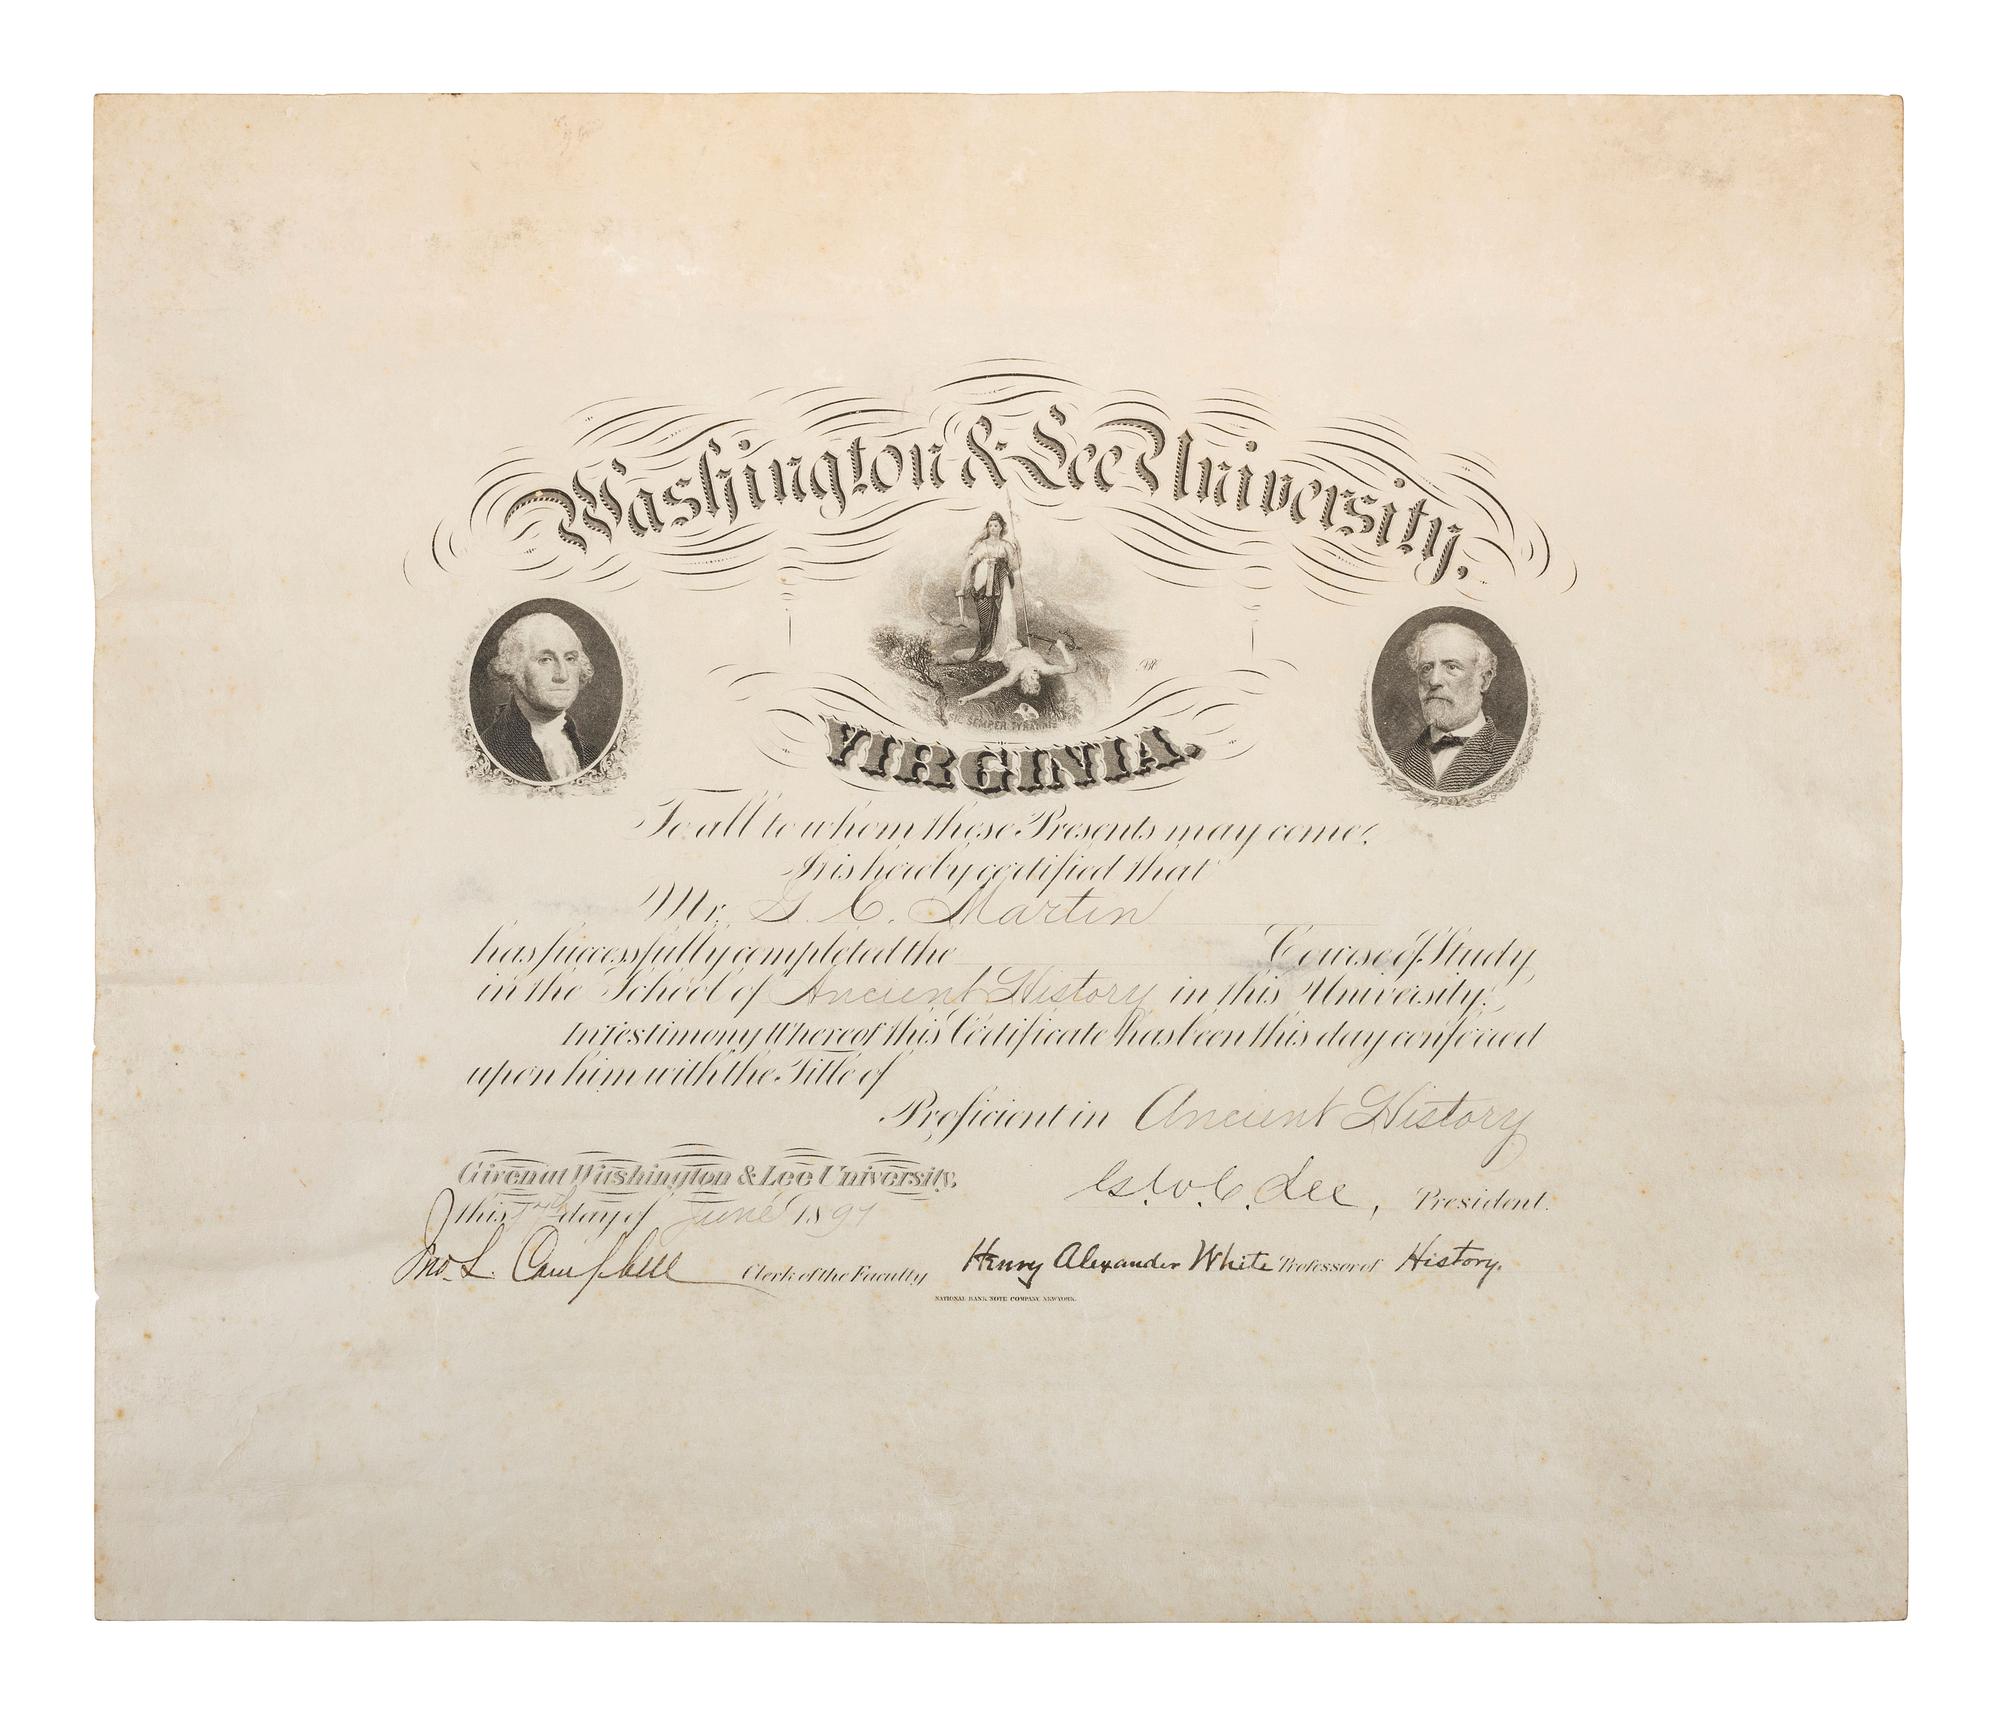 Washington & Lee University.
SIC SEMPER TYRANNIS
VIRGINIA.
To all to whom these Presents may come:
It is hereby certified that
Mr. G. C. Martin
has successfully completed the Course of Study
in the School of Ancient History in this University.
In Testimony Whereof this Certificate has been this day conferred
upon him with the Title of
Proficient in Ancient History
Given at Washington & Lee University,
this day of June 1897
G. W. C. Lee, President.
Jno. L. Campbell Clerk of the Faculty
Henry Alexander White Professor of History.
NATIONAL BANK NOTE COMPANY, NEW YORK.